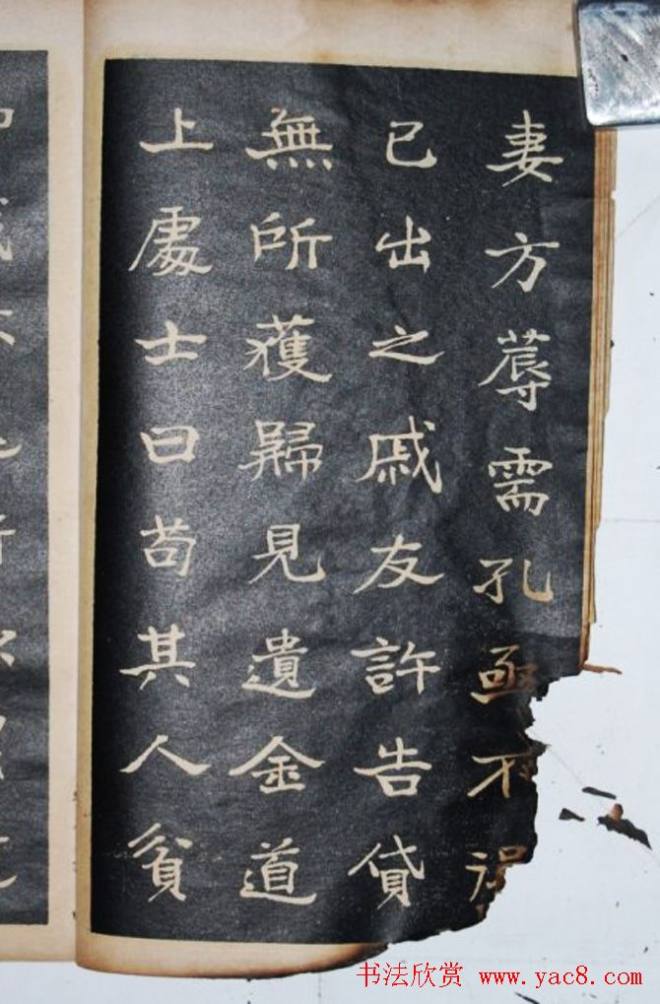 妻方蓐需孔亟不得
已出之戚友許告貸
無所獲歸見遺金道
上處士曰苟其人貧
书法欣赏 www.yac8.com